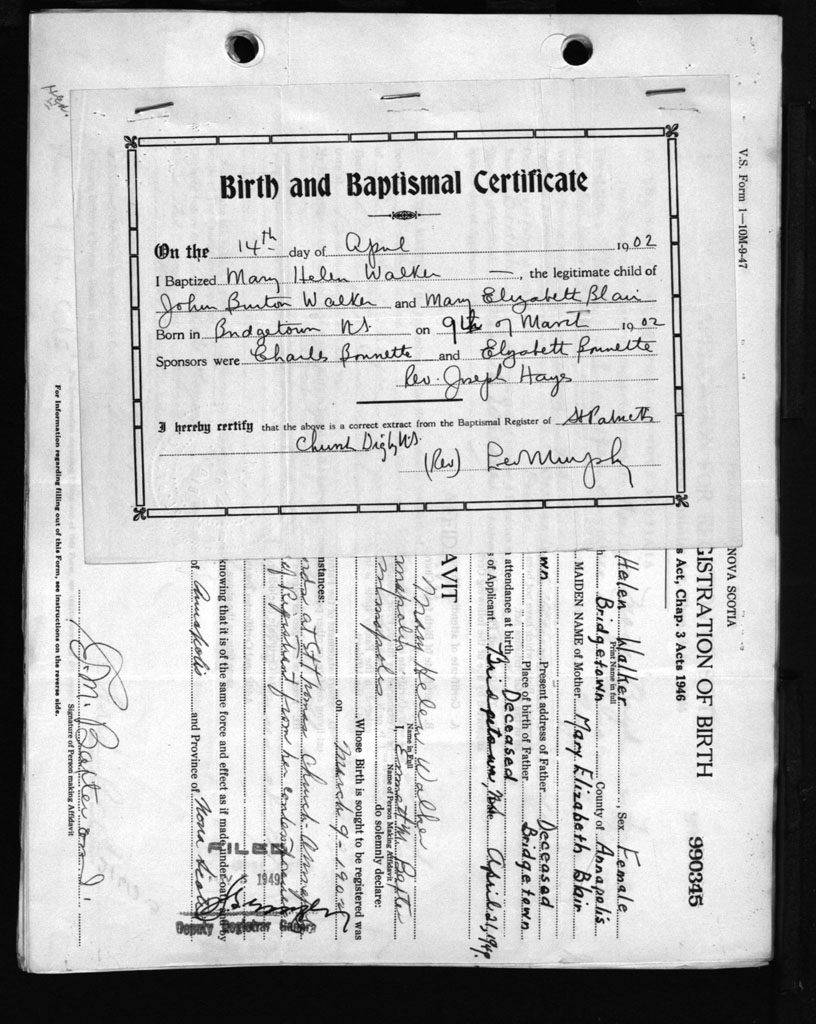 Birth and Baptismal Certificate
On the 14th day of April 1902
I Baptized Mary Helen Walker —, the legitimate child of
John Burton Walker and Mary Elizabeth Blair
Born in Bridgetown N.S. on 9th of March 1902
Sponsors were Charles Bonnette and Elizabeth Bonnette
Rev. Joseph Hayes
I hereby certify that the above is a correct extract from the Baptismal Register of St Patrick's
Church Digby N.S.
(Rev) Leo Murphy
V.S. Form 1—10M-9-47
NOVA SCOTIA
GISTRATION OF BIRTH 990345
s Act, Chap. 3 Acts 1946
Helen Walker Sex Female
Print Name in full
h Bridgetown County of Annapolis
MAIDEN NAME of Mother Mary Elizabeth Blair
wn Present address of Father Deceased
Place of birth of Father Bridgetown
attendance at birth Deceased
s of Applicant Bridgetown, N.S. April 21, 1949.
AVIT
Mary Helen Walker
Name in Full
nnapolis I, Baxter
Name of Person Making Affidavit
Annapolis do solemnly declare:
Whose Birth is sought to be registered was
on March 9-1902
nstances:
at St Thomas Church
of Registrant from her
knowing that it is of the same force and effect as if made under oath by
of Annapolis and Province of Nova Scotia
FILED
1949
Deputy Registrar General
J. M. Baxter
Signature of Person making Affidavit
For Information regarding filling out of this Form, see instructions on the reverse side.